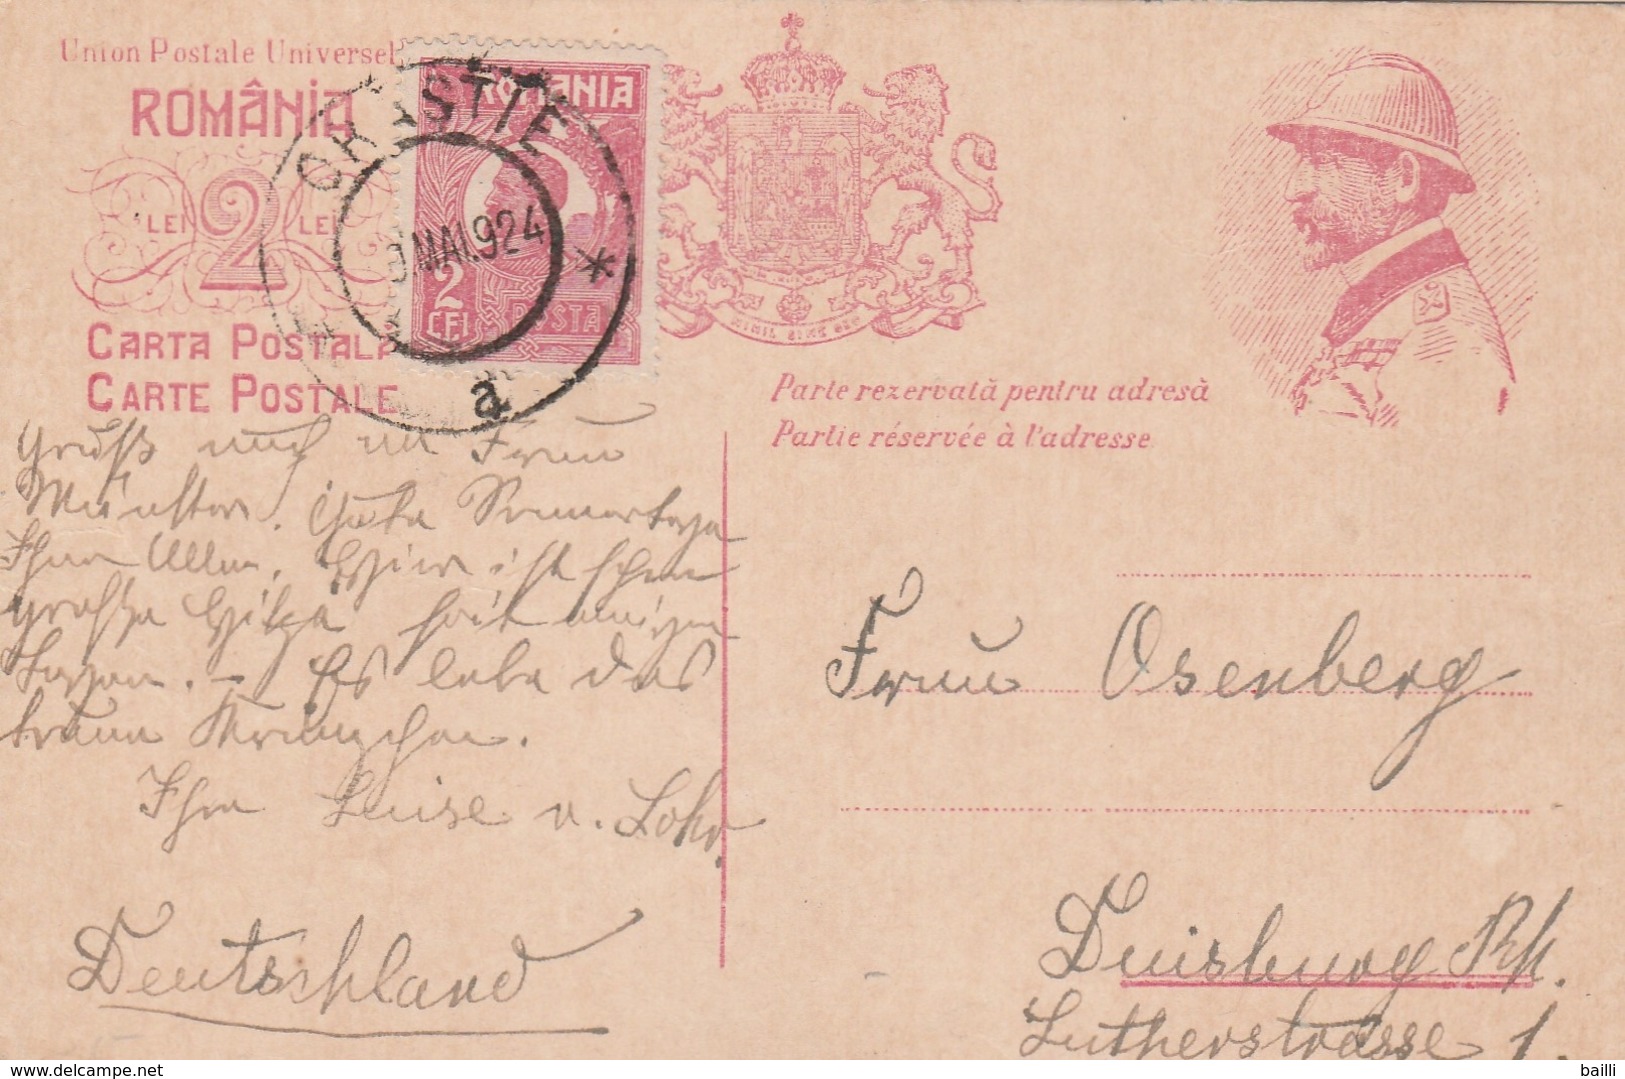 Union Postale Universel
ROMÂNIA
LEI 2 LEI
CARTA POSTALĂ
CARTE POSTALE
ROMANIA
2
LEI
POSTA
ORĂSTIE
9 MAI.924
*
a
NIHIL SINE DEO
Parte rezervată pentru adresă
Partie réservée à l'adresse
Gruß auch an Frau
Münster. Gute Sommertage
Ihnen Allen. Hier ist schon
große Hitze seit einigen
Tagen. – Es lebe das
braune Kränzchen.
Ihre Luise v. Lohr.
Deutschland
Frau Osenberg
Duisburg Rh.
Lutherstrasse 1.
bailli